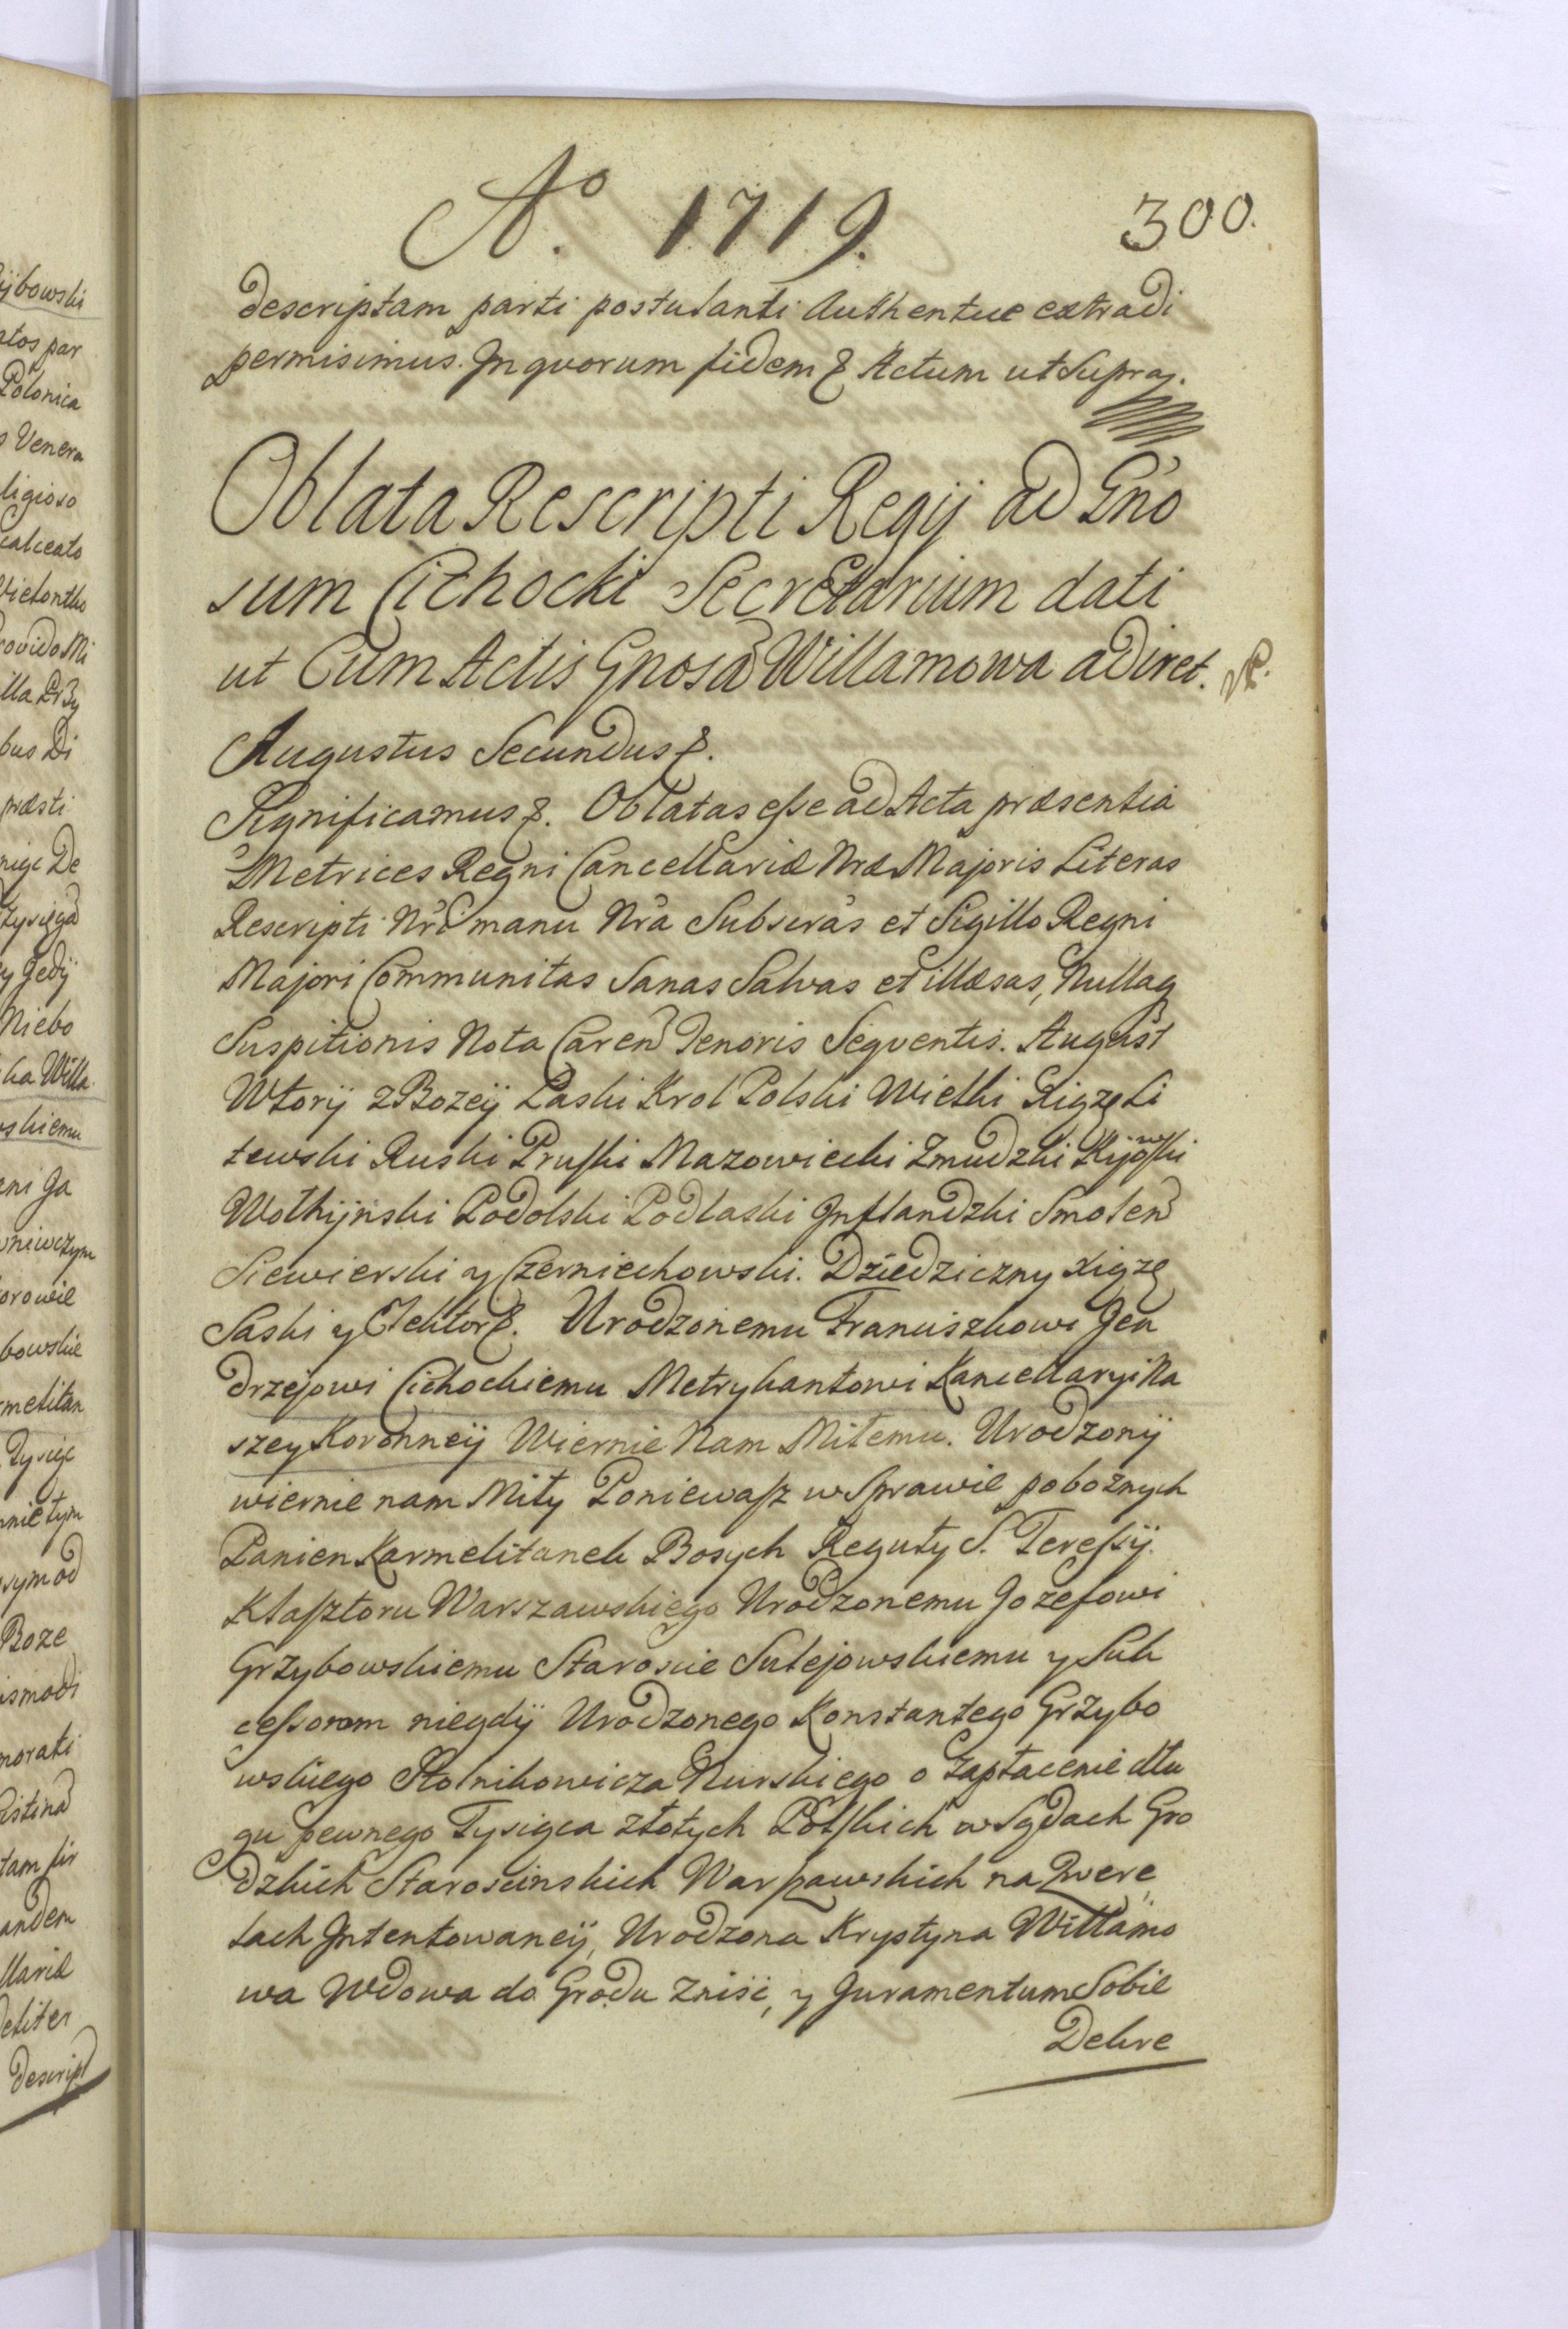 ijbowski
atos par
Polonica
Venera
ligioso
calceato
Victontho
rovido Mi
illa
bus Di
præsti
nige De
tysięga
y Gedÿ
Niebo
ka Willa
skiemu
ani Ja
wniewczym
orowie
bowskie
rmelitan
Tysię
nnie tym
sym od
Boze
ismodi
morati
istina
tam fir
andem
llariæ
eliter
Descript
Aº. 1719.
300.
descriptam parti postulanti Authentice extradi
permisimus. In qvorum fidem & Actum ut Supra.
Oblata Rescripti Regij ad Gno
sum Cichocki Secretarium dati
ut Cum Actis Gnosa Willamowa adiret.
Augustus Secundus &.
Significamus &. Oblatas eſse ad Acta præsentia
Metrices Regni Cancellariæ Nræ Majoris Literas
Rescripti Nri manu Nra Subscras et Sigillo Regni
Majori Communitas Sanas Salvas et illæsas, Nullaq
Suspitionis Nota Caren Tenoris Seqventis. August
Wtorÿ z Bozeÿ Laski Krol Polski Wielki Xiąze Li
tewski Ruski Pruſki Mazowiecki Zmudzki Kijowſki
Wołhÿnski Podolski Podlaski Inflandzki Smolen
Siewierski y Czerniechowski. Dziedziczny xiąze
Saski y Elektor &. Urodzonemu Franciszkowi Jen
drzejowi Cichockiemu Metrykantowi Kancellaryi Na
szey Koronneÿ Wiernie Nam Miłemu. Urodzonÿ
wiernie nam Miły Poniewaſz w Sprawie poboznych
Panien Karmelitanek Bosych Reguły S. Tereſsÿ
Klaſztoru Warszawskiego Urodzonemu Jozefowi
Grzybowskiemu Staroscie Sulejowskiemu y Suk
ceſsorom niegdÿ Urodzonego Konstantego Grzybo
wskiego Stolnikowicza Nurskiego o Zapłacenie dłu
gu pewnego Tysiąca złotych Polſkich w Sądach Gro
dzkich Starościnskich Warſzawskich na Qvere
lach Intentowaneÿ, Urodzona Krystyna Willamo
wa Wdowa do Grodu Zniść, y Juramentum Sobie
Dekre